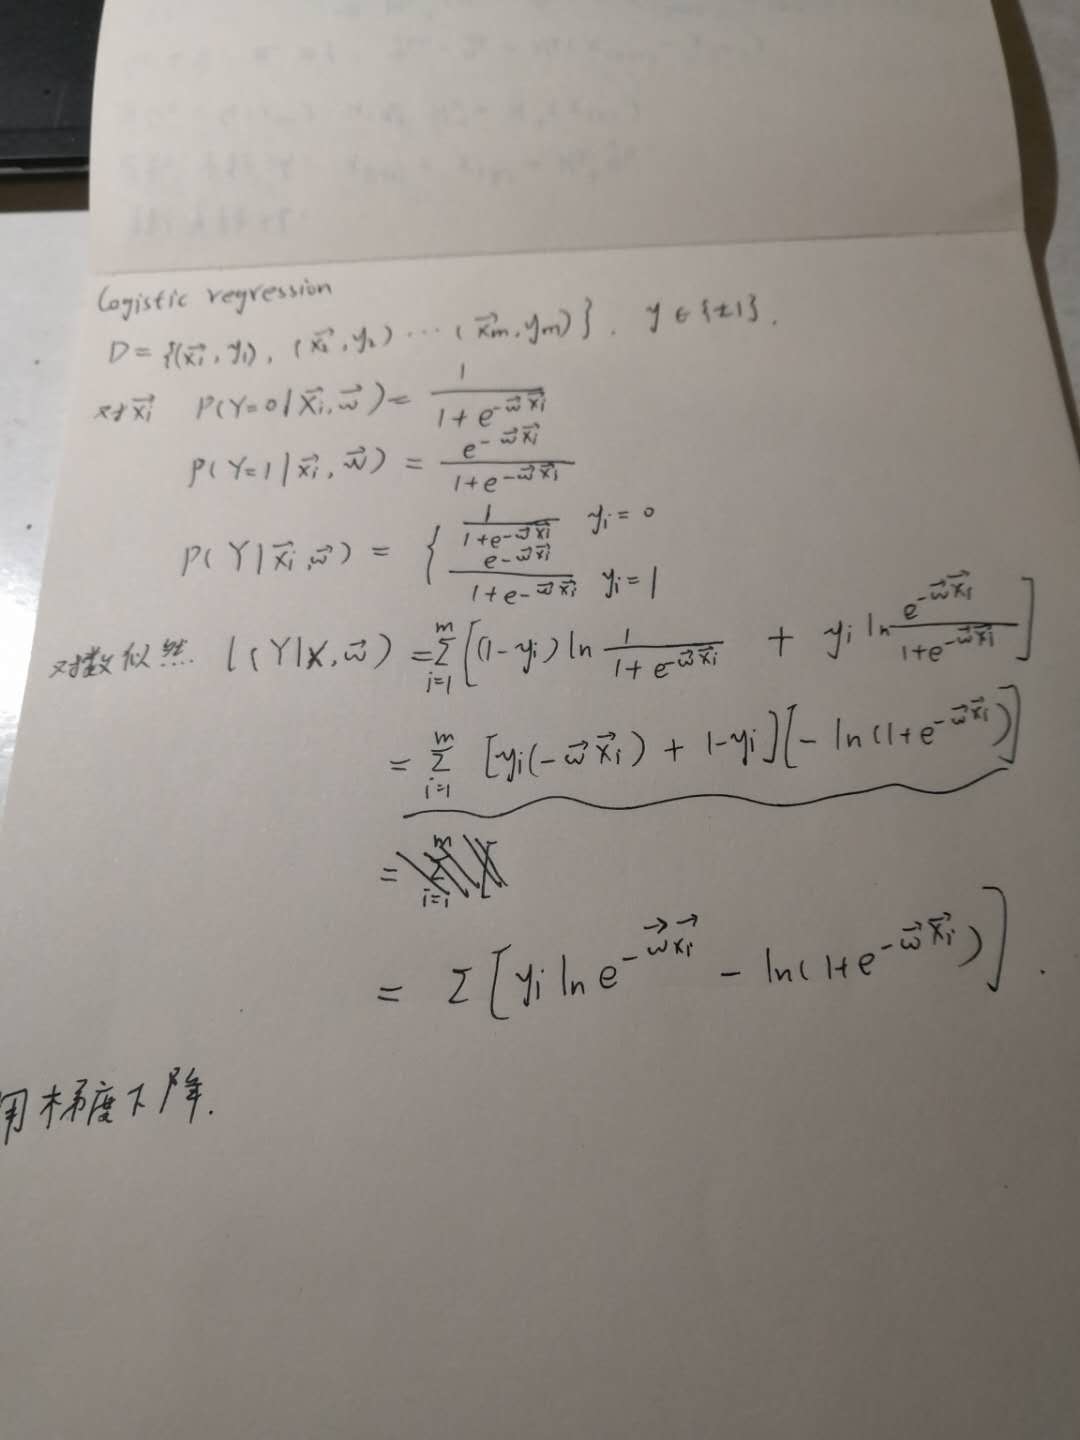 Logistic regression
D = {(x⃗₁, y₁), (x⃗₂, y₂) ⋯ (x⃗m, ym)}. y ∈ {±1}.
对x⃗i P(Y=0 | x⃗i, w⃗) = 1 / (1 + e^(-w⃗x⃗i))
P(Y=1 | x⃗i, w⃗) = e^(-w⃗x⃗i) / (1 + e^(-w⃗x⃗i))
P(Y | x⃗i, w⃗) = { 1 / (1 + e^(-w⃗x⃗i)) yi = 0
e^(-w⃗x⃗i) / (1 + e^(-w⃗x⃗i)) yi = 1
对数似然 l(Y|X, w⃗) = Σ_{i=1}^{m} [(1-yi) ln 1 / (1 + e^(-w⃗x⃗i)) + yi ln e^(-w⃗x⃗i) / (1 + e^(-w⃗x⃗i))]
= Σ_{i=1}^{m} [yi(-w⃗x⃗i) + 1-yi][- ln(1+e^(-w⃗x⃗i))]
=
= Σ [yi ln e^(-w⃗x⃗i) - ln(1+e^(-w⃗x⃗i))].
用梯度下降.